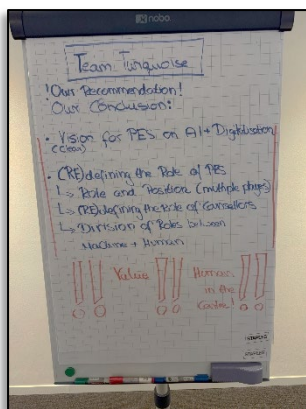 nobo
Team Turquoise
! Our Recommendation!
Our Conclusion:
• Vision for PES on AI + Digitalisation
(clear)
• (RE)defining the Role of PES
↳ Role and Position (multiple players)
↳ (RE)defining the role of Counsellors
↳ Division of Roles between
Machine + Human
!! Value !! Human !!
in the
Center!
STAPLES
STAPLES